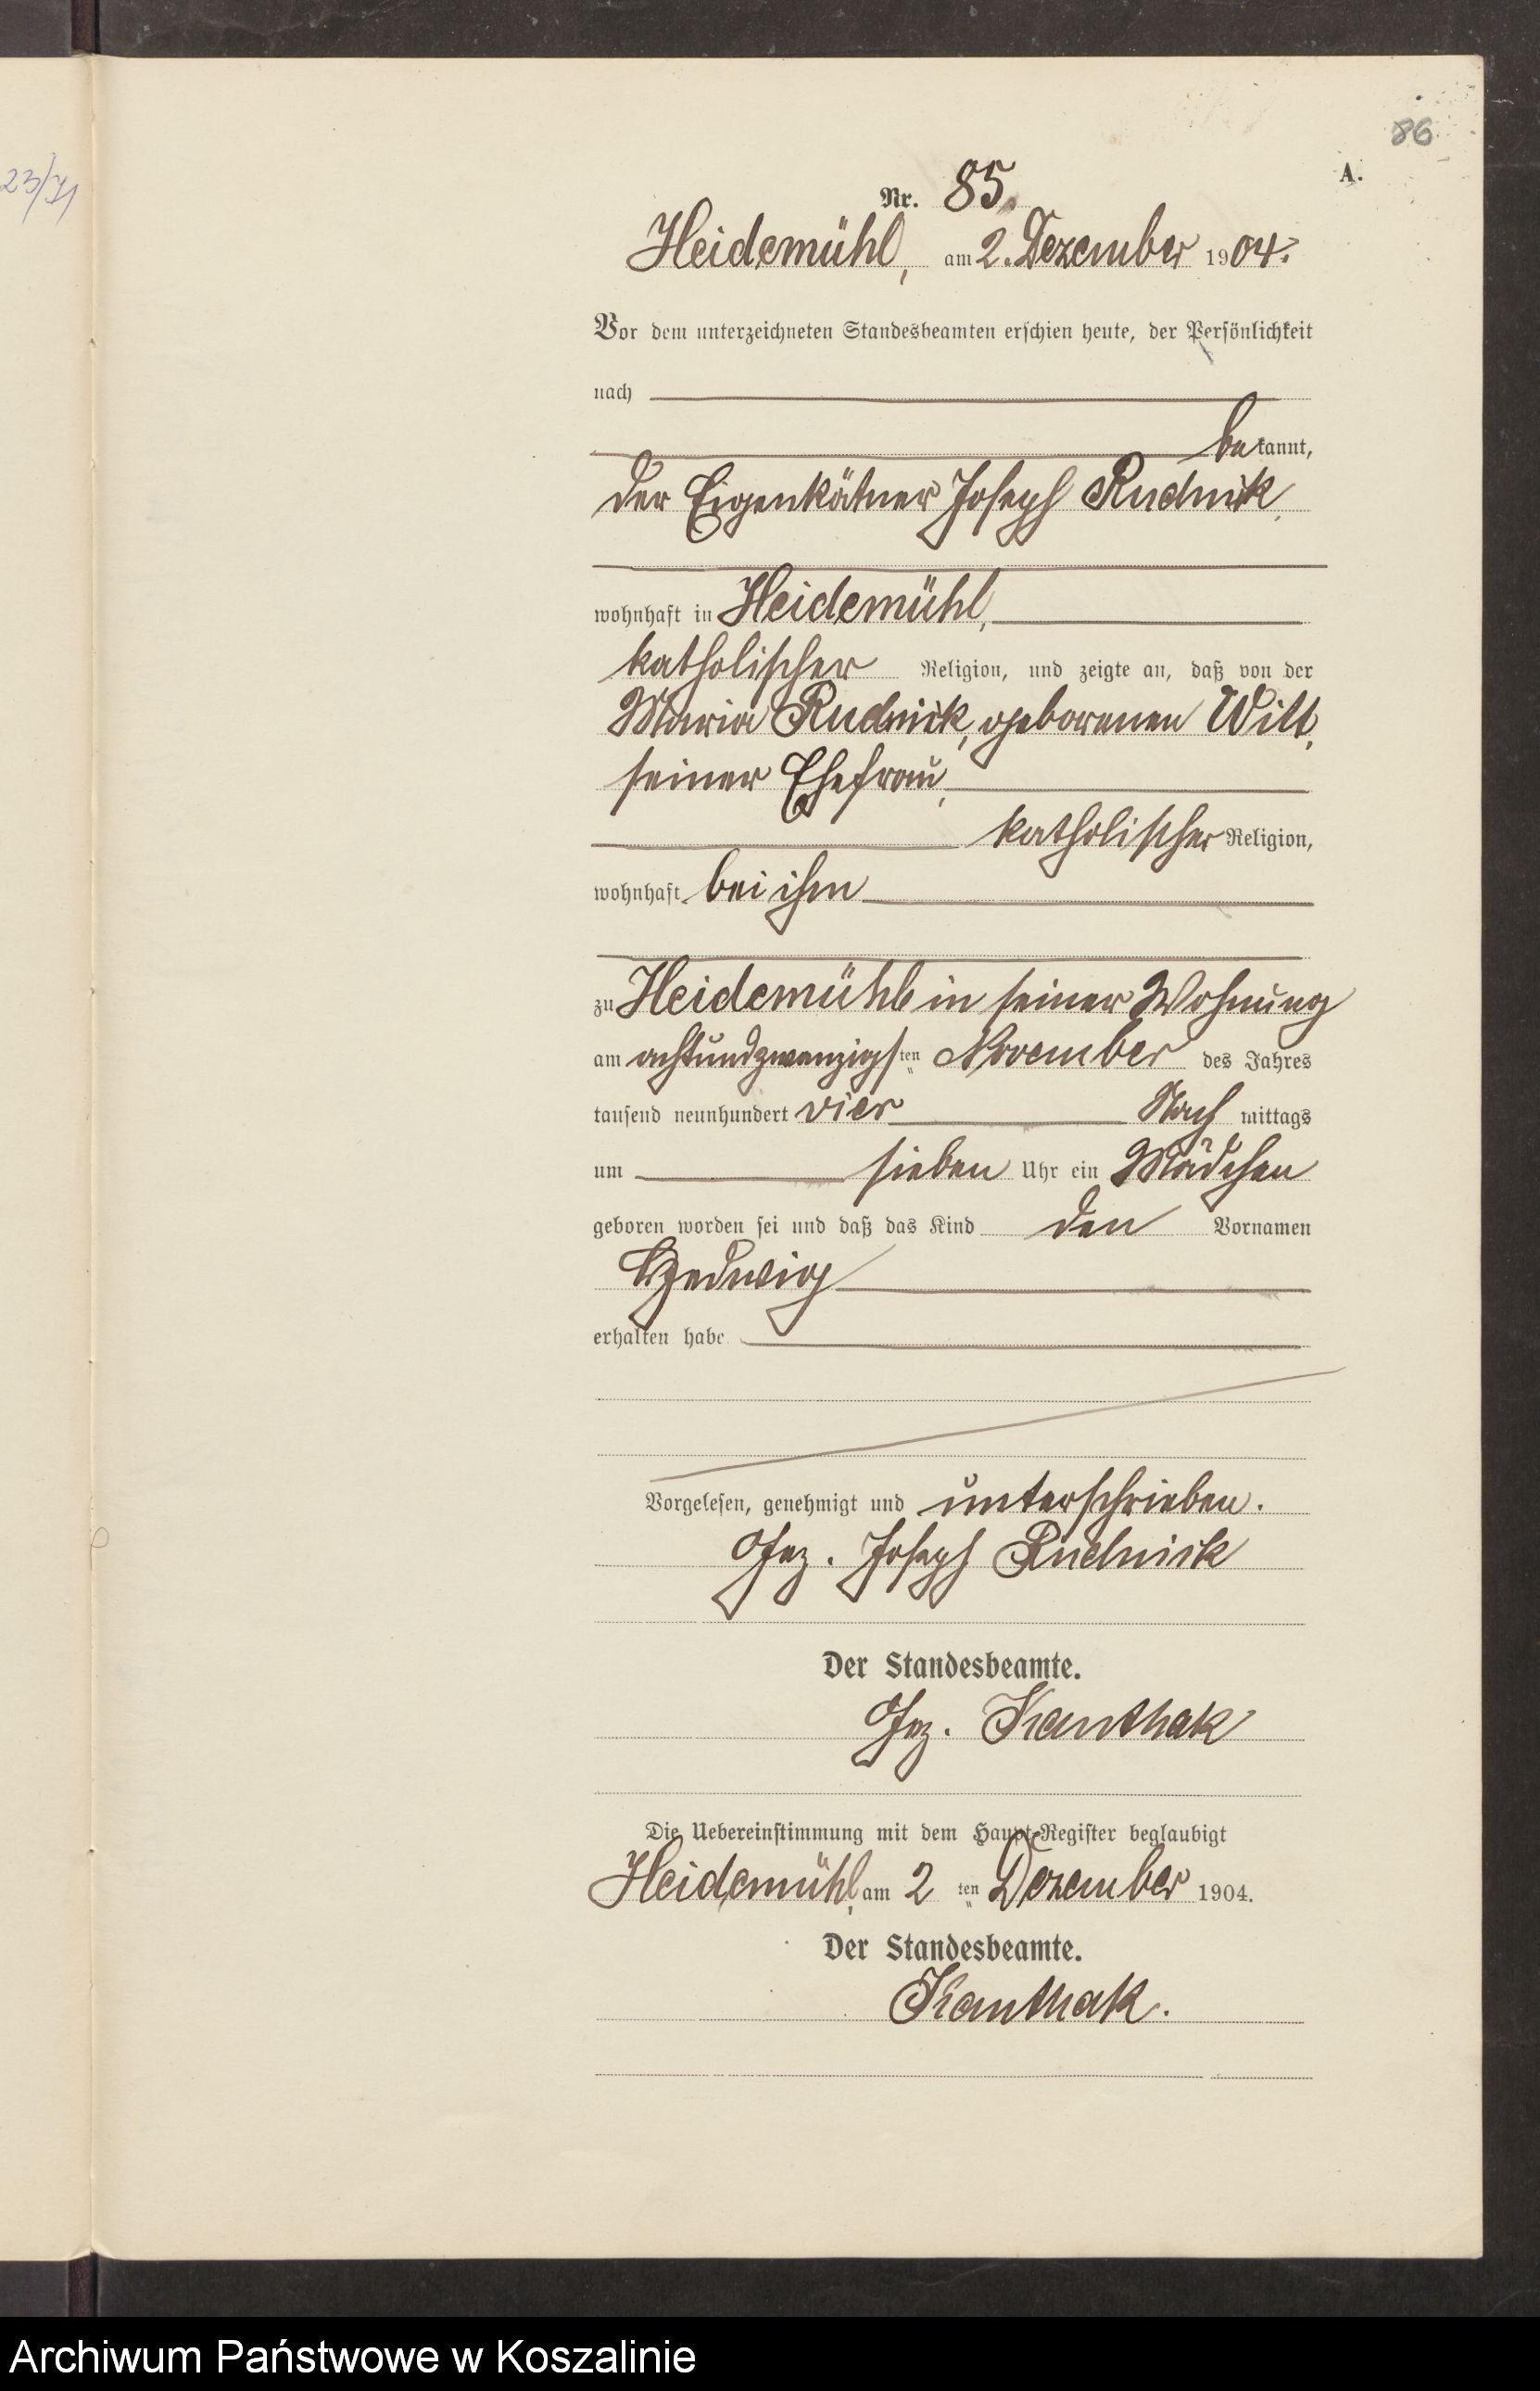 86
A.
23/71
Nr. 85.
Heidemühl, am 2. Dezember 1904.
Vor dem unterzeichneten Standesbeamten erschien heute, der Persönlichkeit
nach
bekannt,
der Eigenkätner Joseph Rudnick,
wohnhaft in Heidemühl,
katholischer Religion, und zeigte an, daß von der
Maria Rudnick, geborenen Wilt,
seiner Ehefrau,
katholischer Religion,
wohnhaft bei ihm
zu Heidemühl in seiner Wohnung
am achtundzwanzigsten November des Jahres
tausend neunhundert vier Nachmittags
um sieben Uhr ein Mädchen
geboren worden sei und daß das Kind den Vornamen
Hedwig
erhalten habe
Vorgelesen, genehmigt und unterschrieben.
Gez. Joseph Rudnick
Der Standesbeamte.
Gez. Kanthak
Die Uebereinstimmung mit dem Haupt-Register beglaubigt
Heidemühl, am 2ten Dezember 1904.
Der Standesbeamte.
Kanthak.
Archiwum Państwowe w Koszalinie